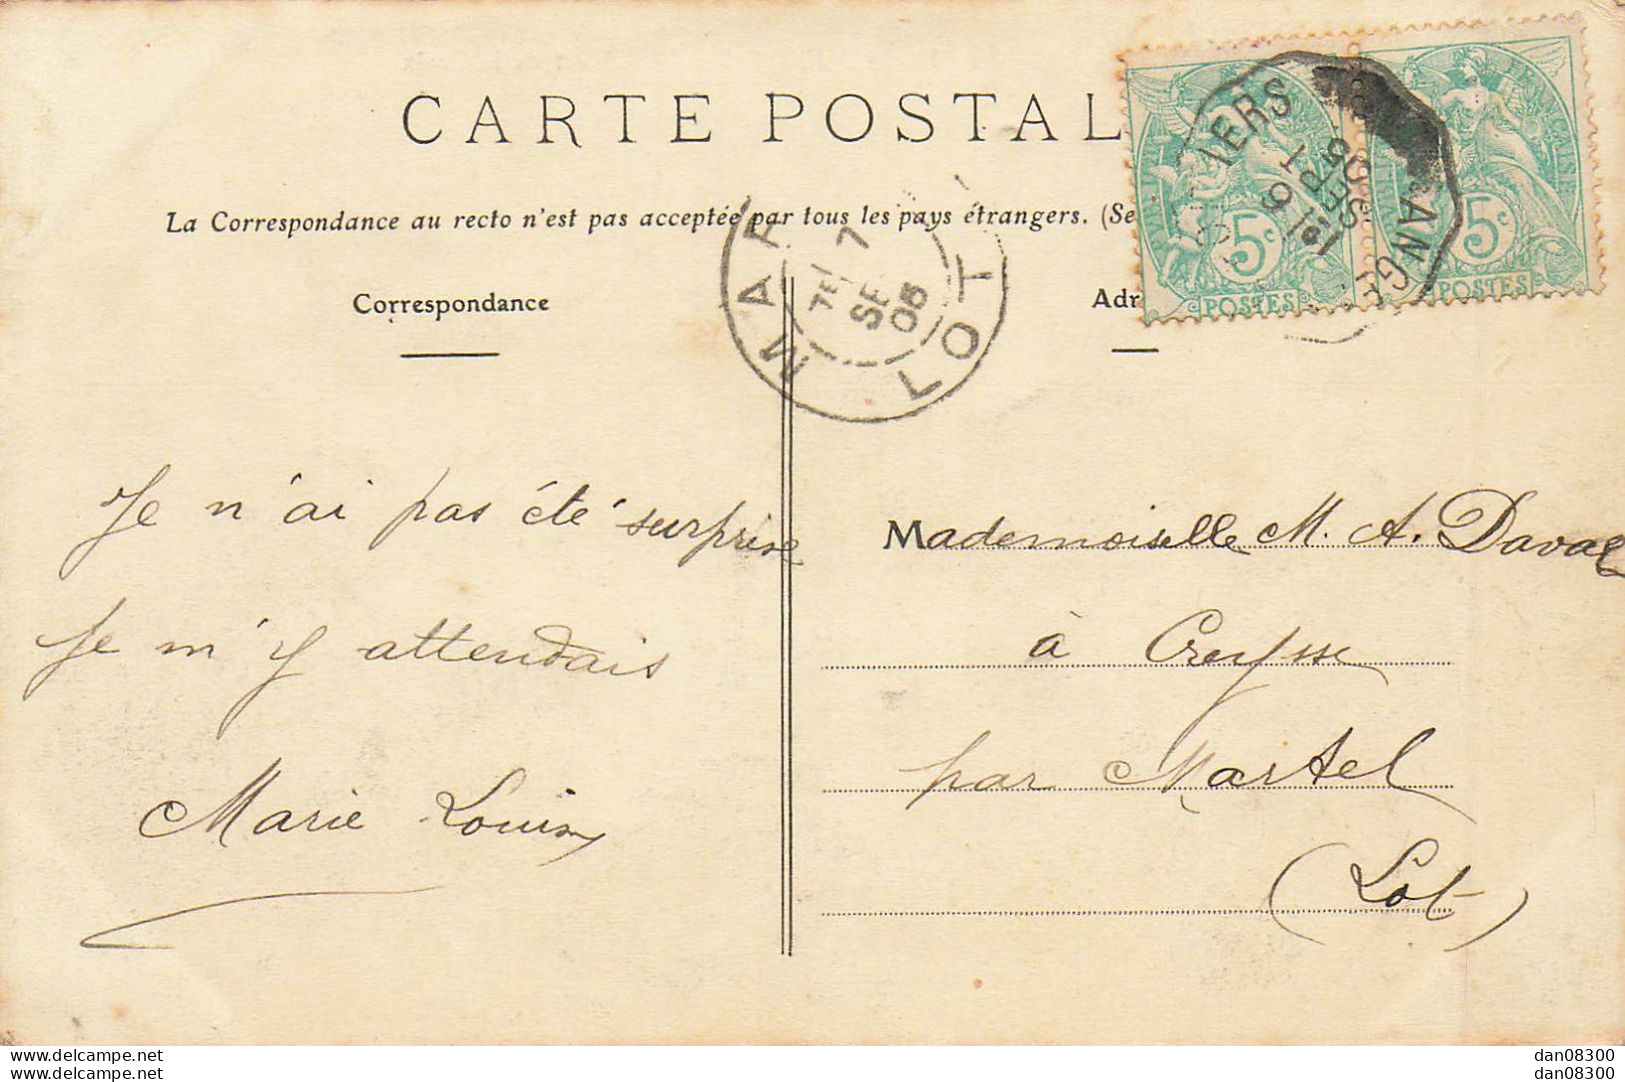 CARTE POSTAL
La Correspondance au recto n'est pas acceptée par tous les pays étrangers. (Se
Correspondance
Adr
5c 5c
POSTES POSTES
IERS
1e 6
SEPT
05
ANG
MAR
7E 7
SE
05
LOT
Je n'ai pas été surprise
Je m'y attendais
Marie Louise
Mademoiselle M. A. Daval
à Creysse
par Martel
(Lot)
www.delcampe.net
dan08300
www.delcampe.net
dan08300